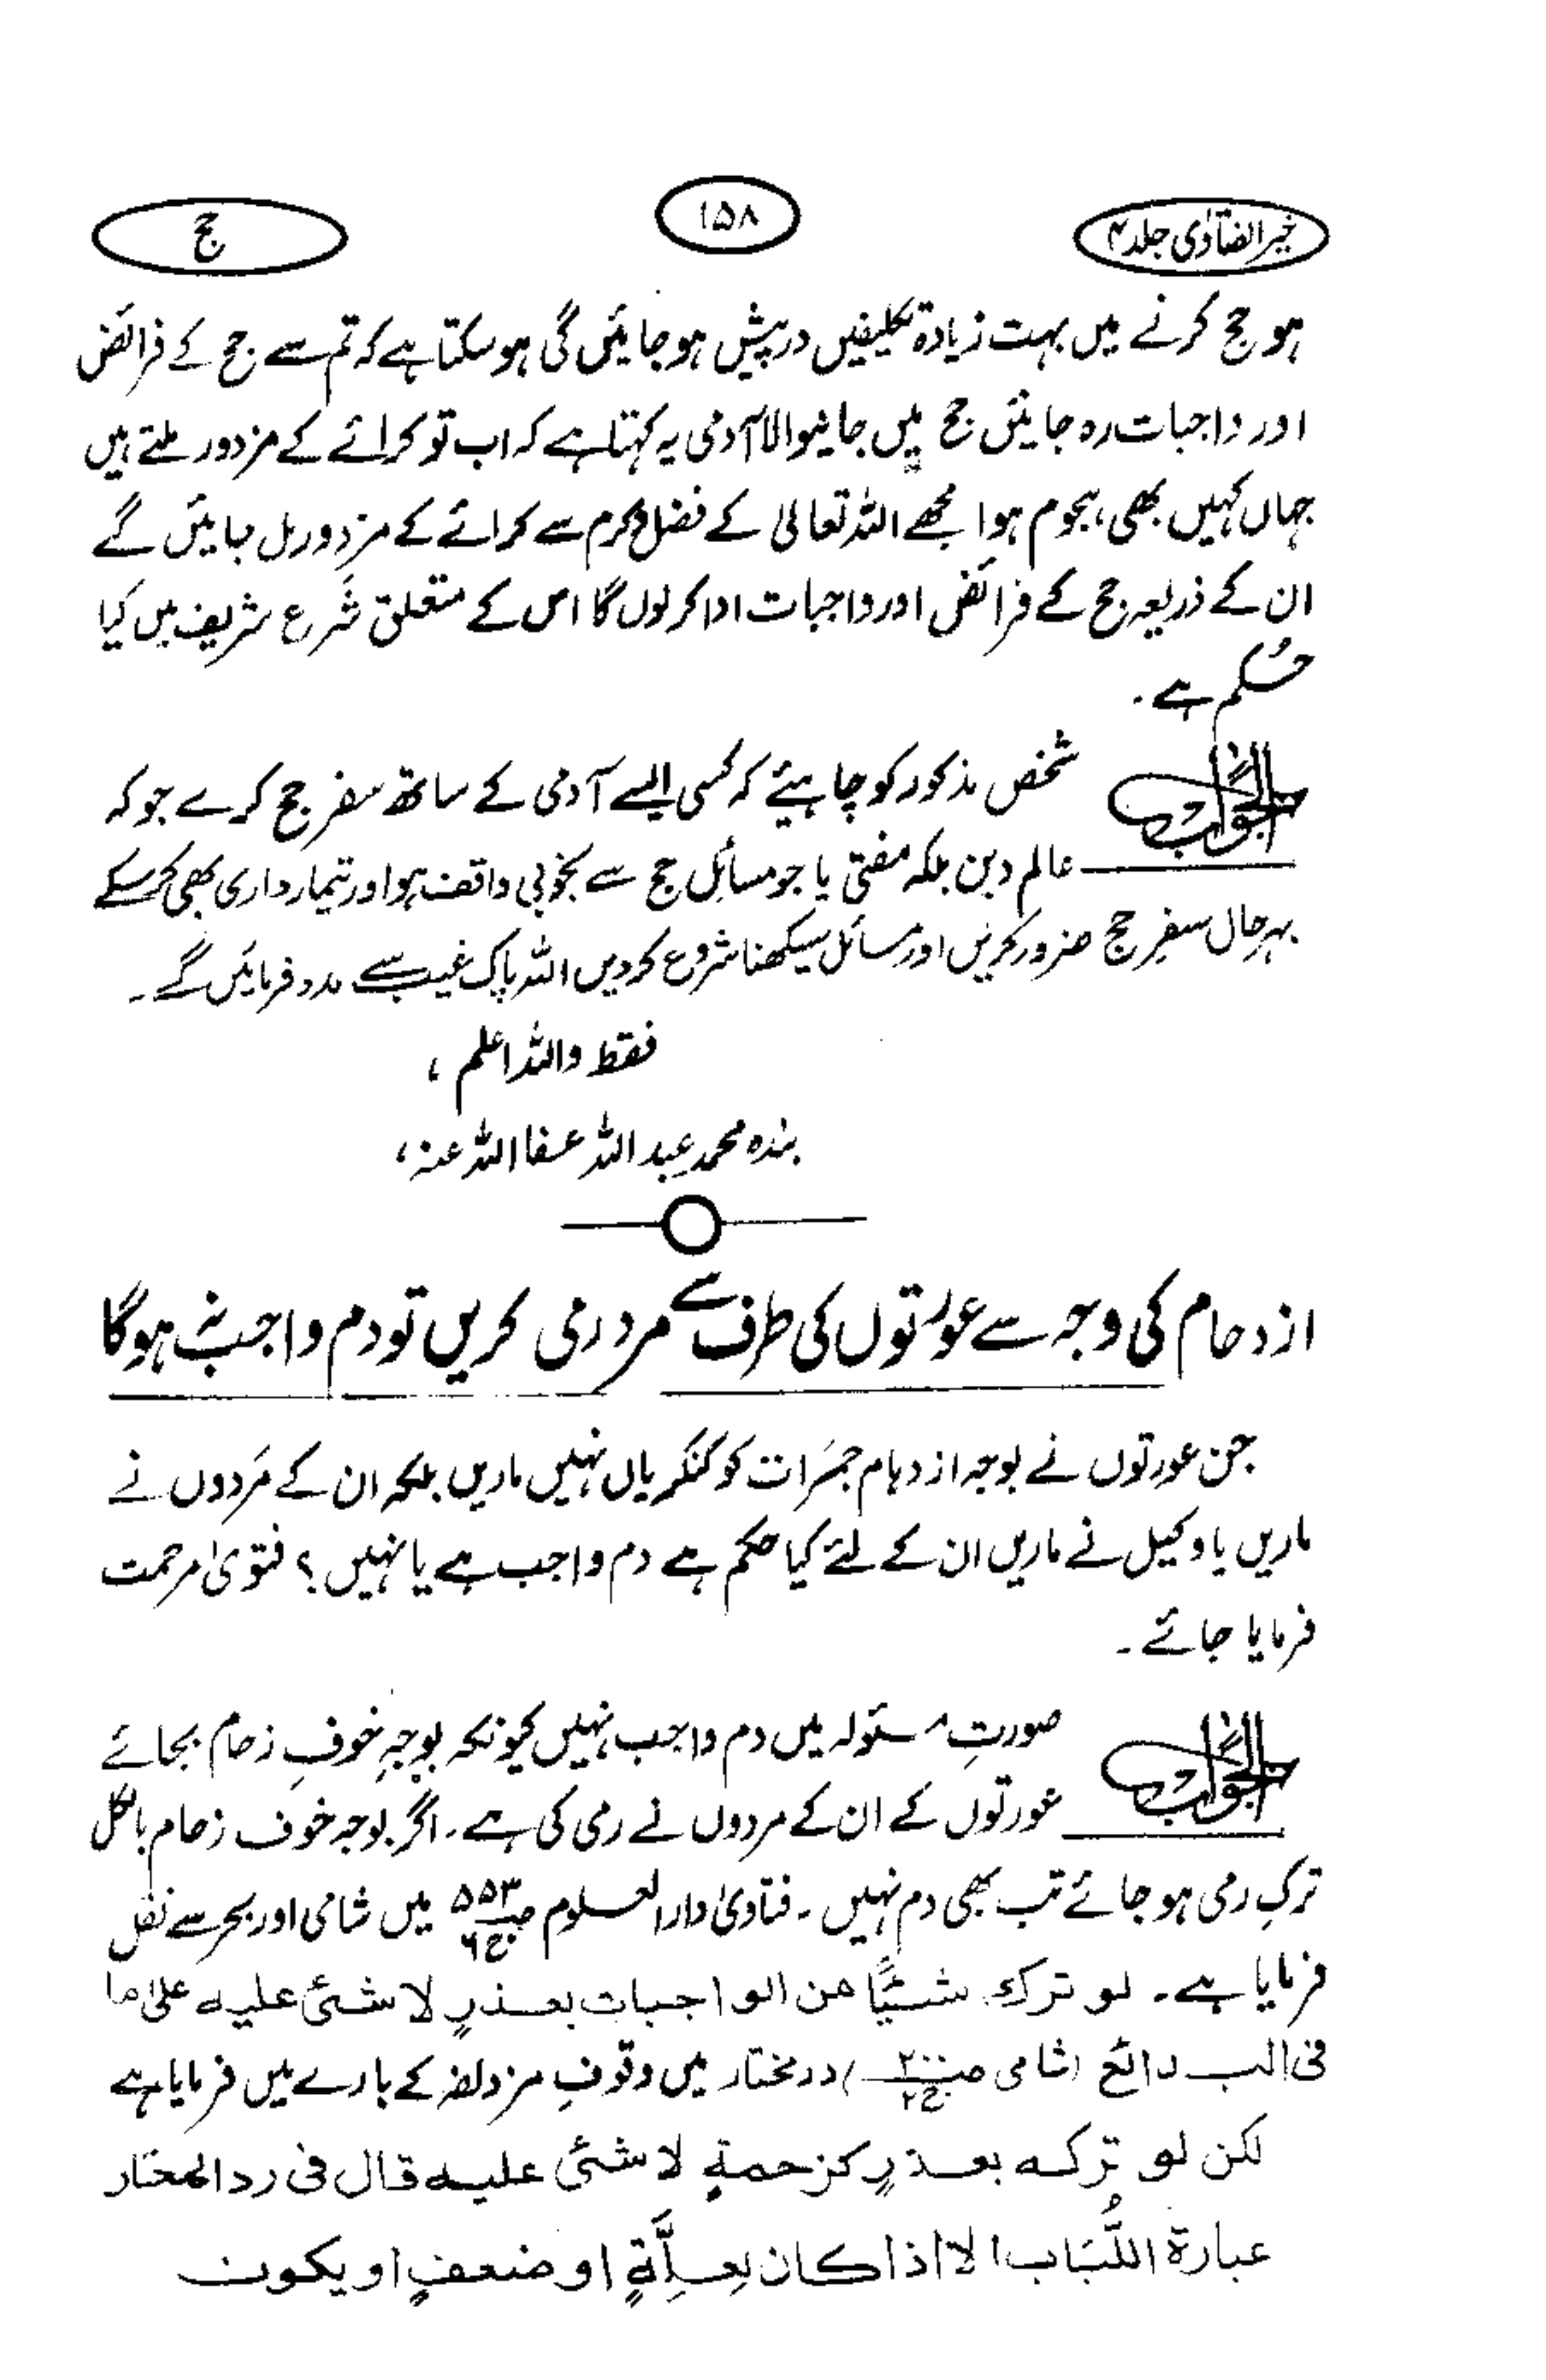 خیر الفتاوٰی جلد ۴
۱۵۸
حج
ہو حج کرنے میں بہت زیادہ تکلیفیں درپیش ہو جائیں گی ہو سکتا ہے کہ تم سے حج کے فرائض
اور واجبات رہ جائیں حج میں جانیوالا آدمی یہ کہتا ہے کہ اب تو کرائے کے مزدور ملتے ہیں
جہاں کہیں بھی ہجوم ہوا مجھے اللہ تعالیٰ کے فضل و کرم سے کرائے کے مزدور مل جائیں گے
ان کے ذریعہ حج کے فرائض اور واجبات ادا کرلوں گا اس کے متعلق شرع شریف میں کیا
حکم ہے۔
الجواب شخص مذکور کو چاہیئے کہ کسی ایسے آدمی کے ساتھ سفر حج کرے جو کہ
عالم دین بلکہ مفتی یا جو مسائل حج سے بخوبی واقف ہو اور تیمارداری بھی کرسکے
بہرحال سفرِ حج ضرور کریں اور مسائل سیکھنا شروع کردیں اللہ پاک غیب سے مدد فرمائیں گے۔
فقط واللہ اعلم ،
بندہ محمد عبد اللہ عفا اللہ عنہ ،
ازدحام کی وجہ سے عورتوں کی طرف سے مرد رمی کریں تو دم واجب نہ ہوگا
جن عورتوں نے بوجہ ازدہام جمرات کو کنکریاں نہیں ماریں بلکہ ان کے مَردوں نے
ماریں یا وکیل نے ماریں ان کے لئے کیا حکم ہے دم واجب ہے یا نہیں ؟ فتویٰ مرحمت
فرمایا جائے۔
الجواب صورتِ مسئولہ میں دم واجب نہیں کیونکہ بوجہِ خوفِ زحام بجائے
عورتوں کے ان کے مردوں نے رمی کی ہے۔ اگر بوجہ خوف زحام بالکل
ترکِ رمی ہو جائے تب بھی دم نہیں۔ فتاویٰ دارالعلوم ص۵۵۳ ج۶ میں شامی اور بحر سے نقل
فرمایا ہے۔ لو ترك شيئًا من الواجبات بعذرٍ لا شئ عليه علىٰ ما
فى البدائع (شامی ص۲۰۰ ج۲) درمختار میں وقوفِ مزدلفہ کے بارے میں فرمایا ہے
لكن لو تركه بعذرٍ كزحمةٍ لا شئ عليه قال فى رد المحتار
عبارة اللُّباب الا اذا كان بعلَّةٍ او ضعفٍ او يكون